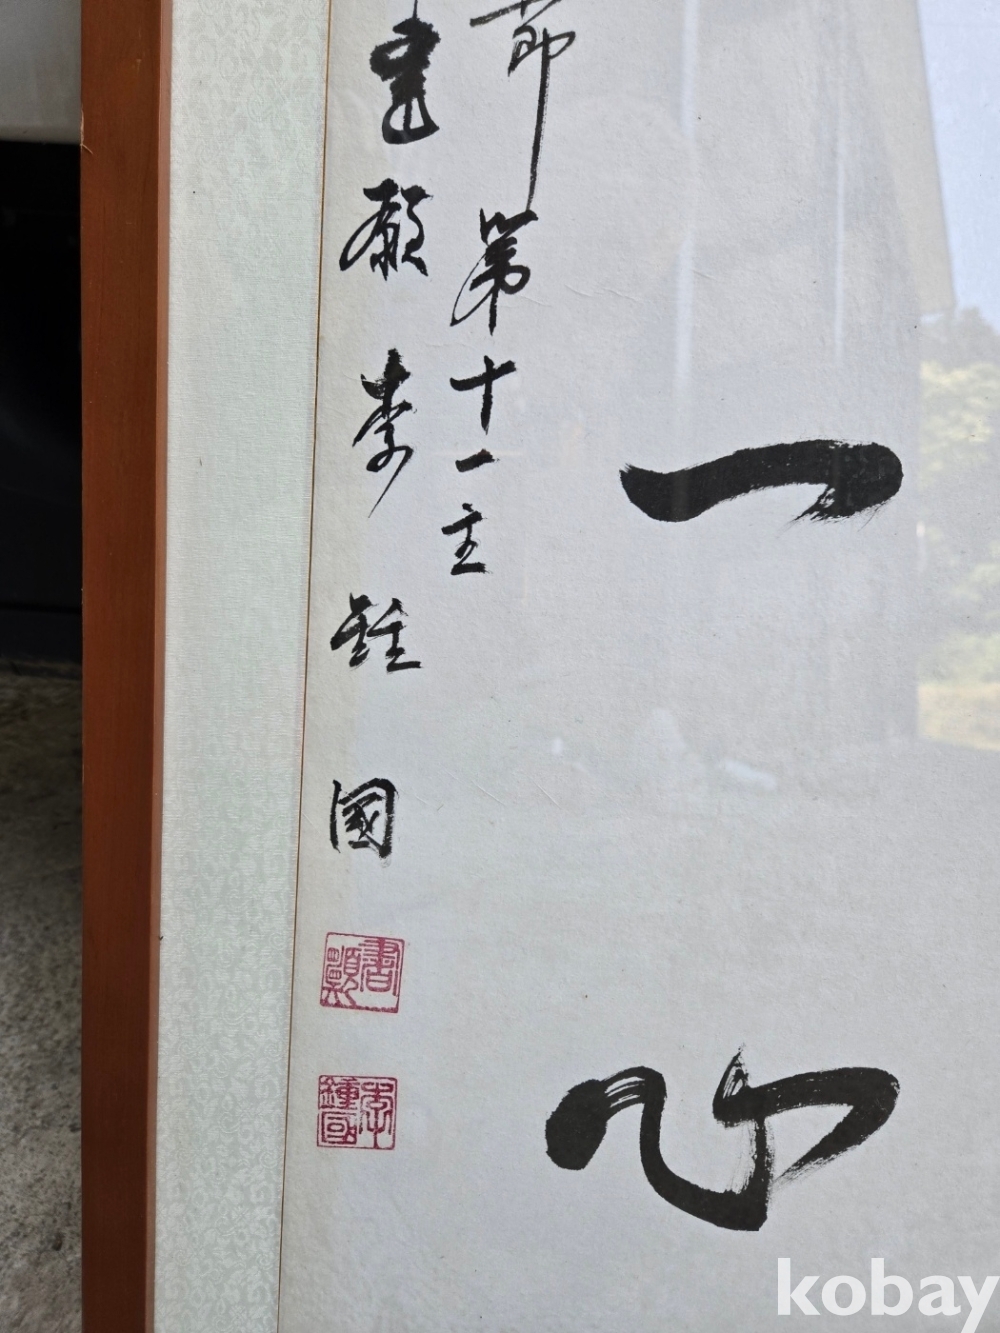 一心
節第十一主
書 李鍾國
書
李鍾國
kobay